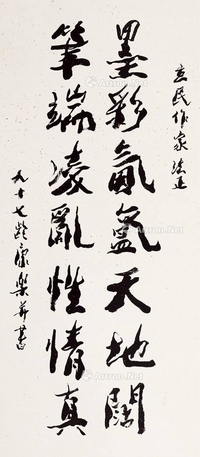 民作家法正
墨彩氤氳天地闊
筆端凌亂性情真
九十七齡康樂書